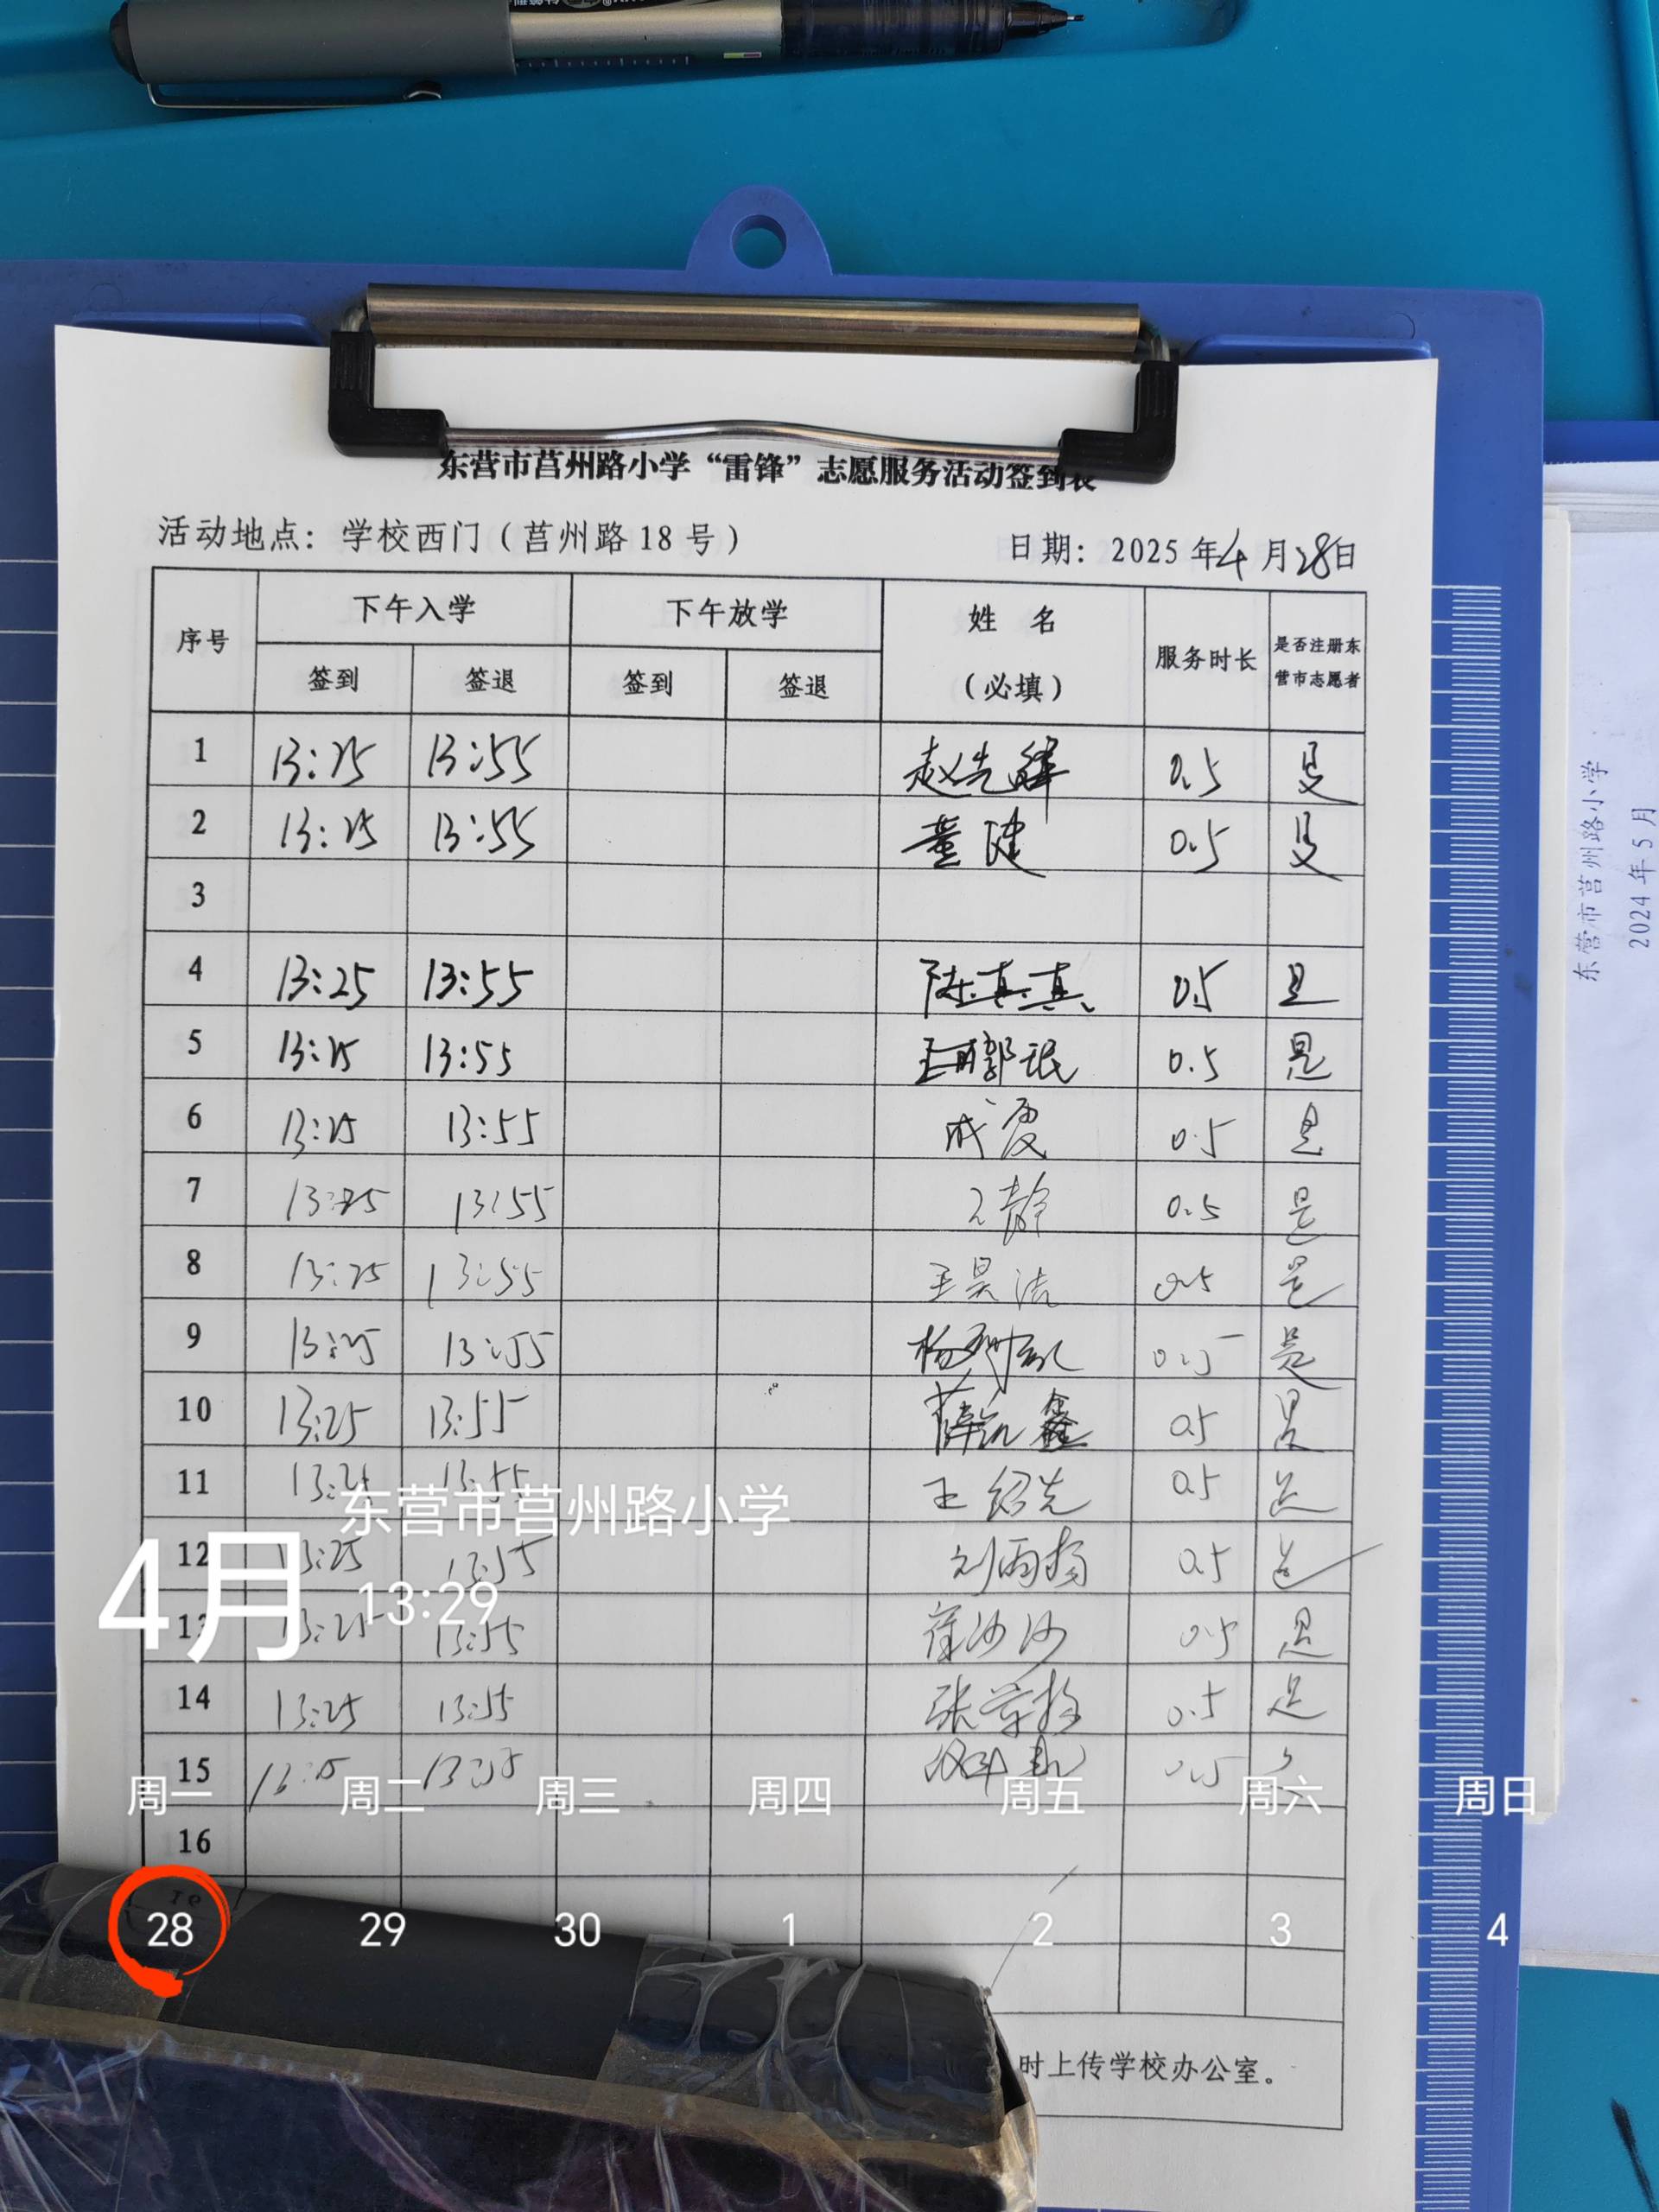 东营市莒州路小学“雷锋”志愿服务活动签到表
活动地点：学校西门（莒州路18号）
日期：2025年4月28日
序号 下午入学 下午放学 姓 名 （必填） 服务时长 是否注册东营市志愿者
签到 签退 签到 签退
1 13:25 13:55 0.5 是
2 13:25 13:55 董健 0.5 是
3
4 13:25 13:55 陆真真 0.5 是
5 13:25 13:55 0.5 是
6 13:25 13:55 成霞 0.5 是
7 13:25 13:55 0.5 是
8 13:25 13:55 王昊洁 0.5 是
9 13:25 13:55 0.5 是
10 13:25 13:55 薛凯鑫 0.5 是
11 13:25 13:55 王绍先 0.5 是
东营市莒州路小学
12 13:25 13:55 刘雨杨 0.5 是
4月 13:29
13 13:25 13:55 崔沙沙 0.5 是
14 13:25 13:55 0.5 是
15 13:25 13:55 0.5
周一 周二 周三 周四 周五 周六 周日
16
28 29 30 1 2 3 4
时上传学校办公室。
东营市莒州路小学
2024年5月